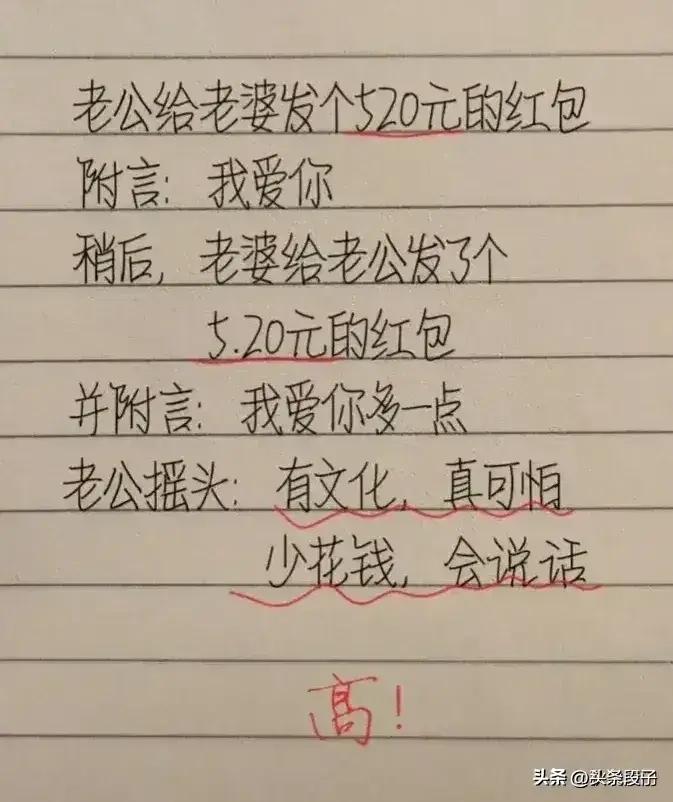 老公给老婆发个520元的红包
附言：我爱你
稍后，老婆给老公发了个
5.20元的红包
并附言：我爱你多一点
老公摇头：有文化，真可怕
少花钱，会说话
高！
头条 @头条段子